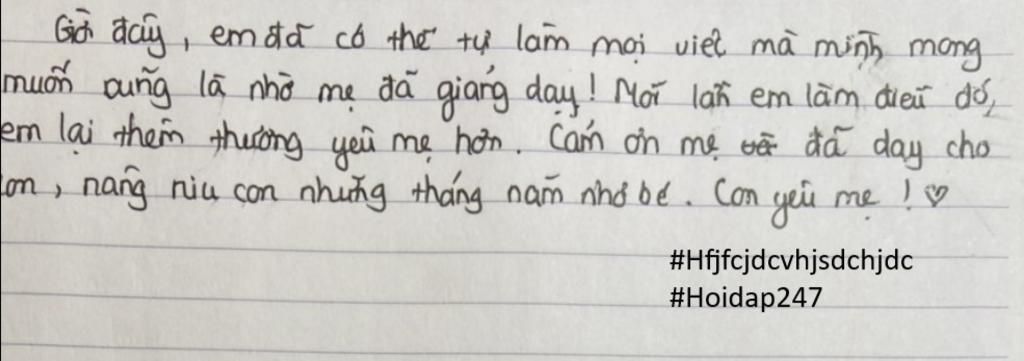 Giờ đây, em đã có thể tự làm mọi việc mà mình mong
muốn cũng là nhờ mẹ đã giảng dạy! Mỗi lần em làm điều đó,
em lại thêm thương yêu mẹ hơn. Cảm ơn mẹ đã dạy cho
con, nâng niu con những tháng năm nhỏ bé. Con yêu mẹ! ♡
#Hfjfcjdcvhjsdchjdc
#Hoidap247